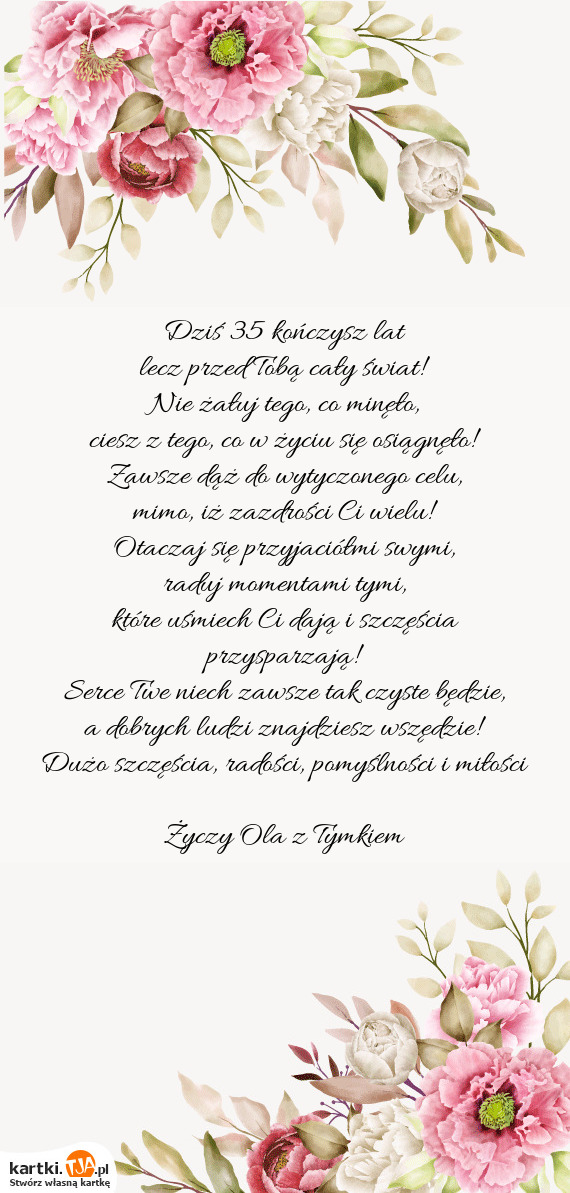 Dziś 35 kończysz lat
lecz przed Tobą cały świat!
Nie żałuj tego, co minęło,
ciesz z tego, co w życiu się osiągnęło!
Zawsze dąż do wytyczonego celu,
mimo, iż zazdrości Ci wielu!
Otaczaj się przyjaciółmi swymi,
raduj momentami tymi,
które uśmiech Ci dają i szczęścia
przysparzają!
Serce Twe niech zawsze tak czyste będzie,
a dobrych ludzi znajdziesz wszędzie!
Dużo szczęścia, radości, pomyślności i miłości
Życzy Ola z Tymkiem
kartki.TJA.pl
Stwórz własną kartkę